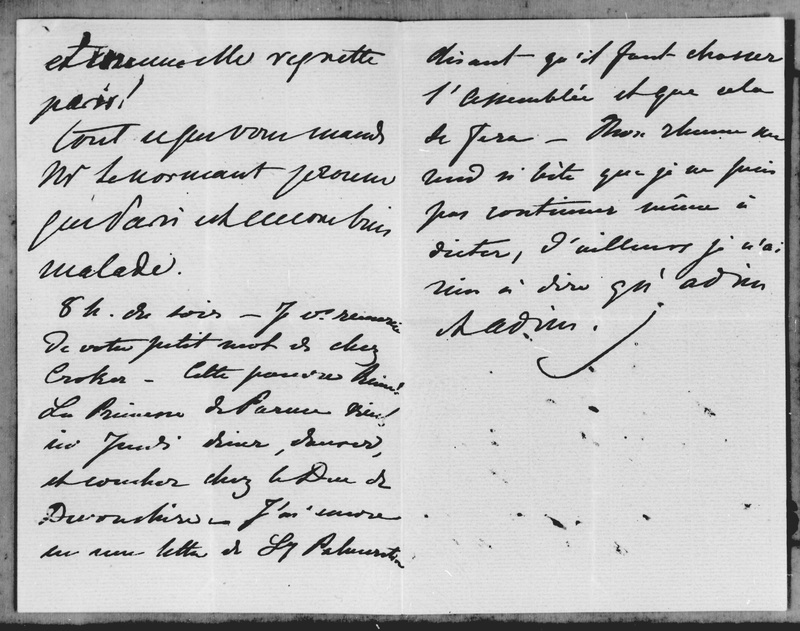 elle regrette
paris!
tout ce que vous mande
Mr Lenormant prouve
que Paris est encore bien
malade.
8 h. du soir – Je vs remercie
de votre petit mot de chez
Croker – Cette pauvre Reine!
La Princesse de Parme vient
ici Jeudi diner, danser,
et coucher chez le Duc de
Devonshire – J'ai encore
eu une lettre de Ly Palmerston
disant qu'il faut chasser
l'assemblée et que cela
se fera – Mon rhume me
rend si bête que je ne puis
pas continuer même à
dicter, d'ailleurs je n'ai
rien à dire qu'adieu
et adieu.